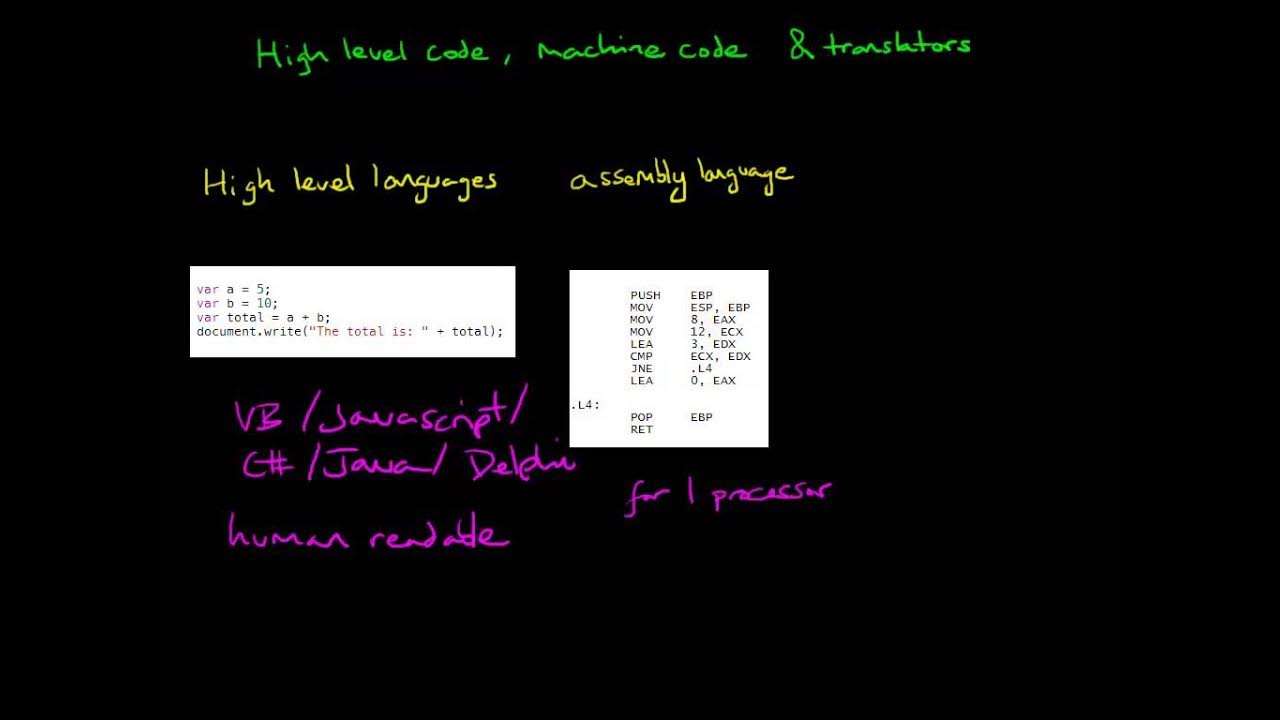 High level code, machine code & translators
High level languages
assembly language
var a = 5;
var b = 10;
var total = a + b;
document.write("The total is: " + total);
PUSH EBP
MOV ESP, EBP
MOV 8, EAX
MOV 12, ECX
LEA 3, EDX
CMP ECX, EDX
JNE .L4
LEA 0, EAX
.L4:
POP EBP
RET
VB / Javascript /
C# / Java / Delphi
human readable
for 1 processor